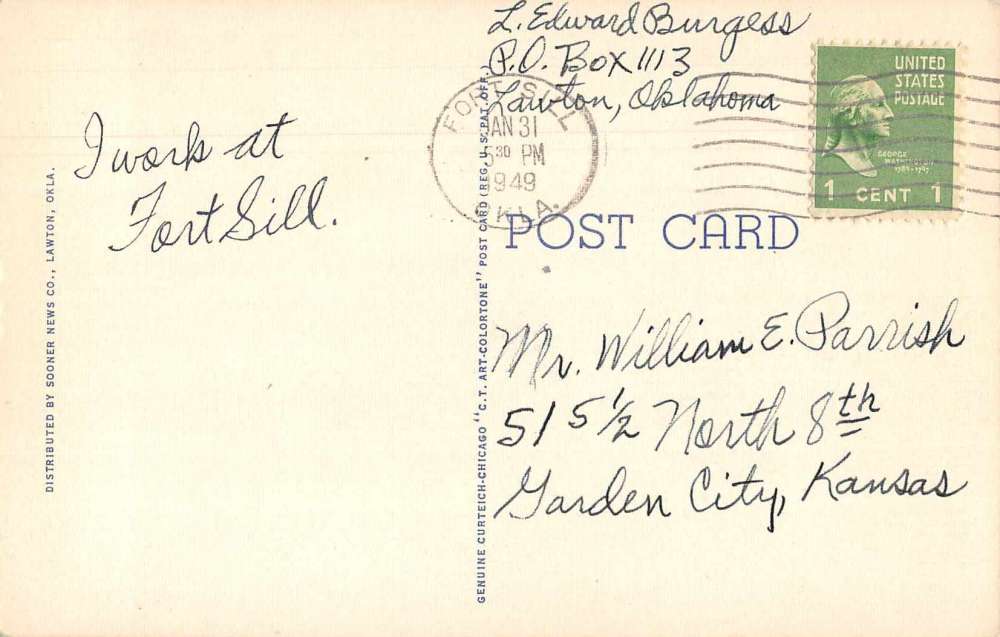 L. Edward Burgess
P.O. Box 1113
Lawton, Oklahoma
FORT SILL
JAN 31
5 30 PM
1949
OKLA.
UNITED
STATES
POSTAGE
GEORGE
WASHINGTON
1789-1797
1 CENT 1
I work at
Fort Sill.
POST CARD
Mr. William E. Parrish
515½ North 8th
Garden City, Kansas
DISTRIBUTED BY SOONER NEWS CO., LAWTON, OKLA.
GENUINE CURTEICH-CHICAGO "C.T. ART-COLORTONE" POST CARD (REG. U.S. PAT. OFF.)